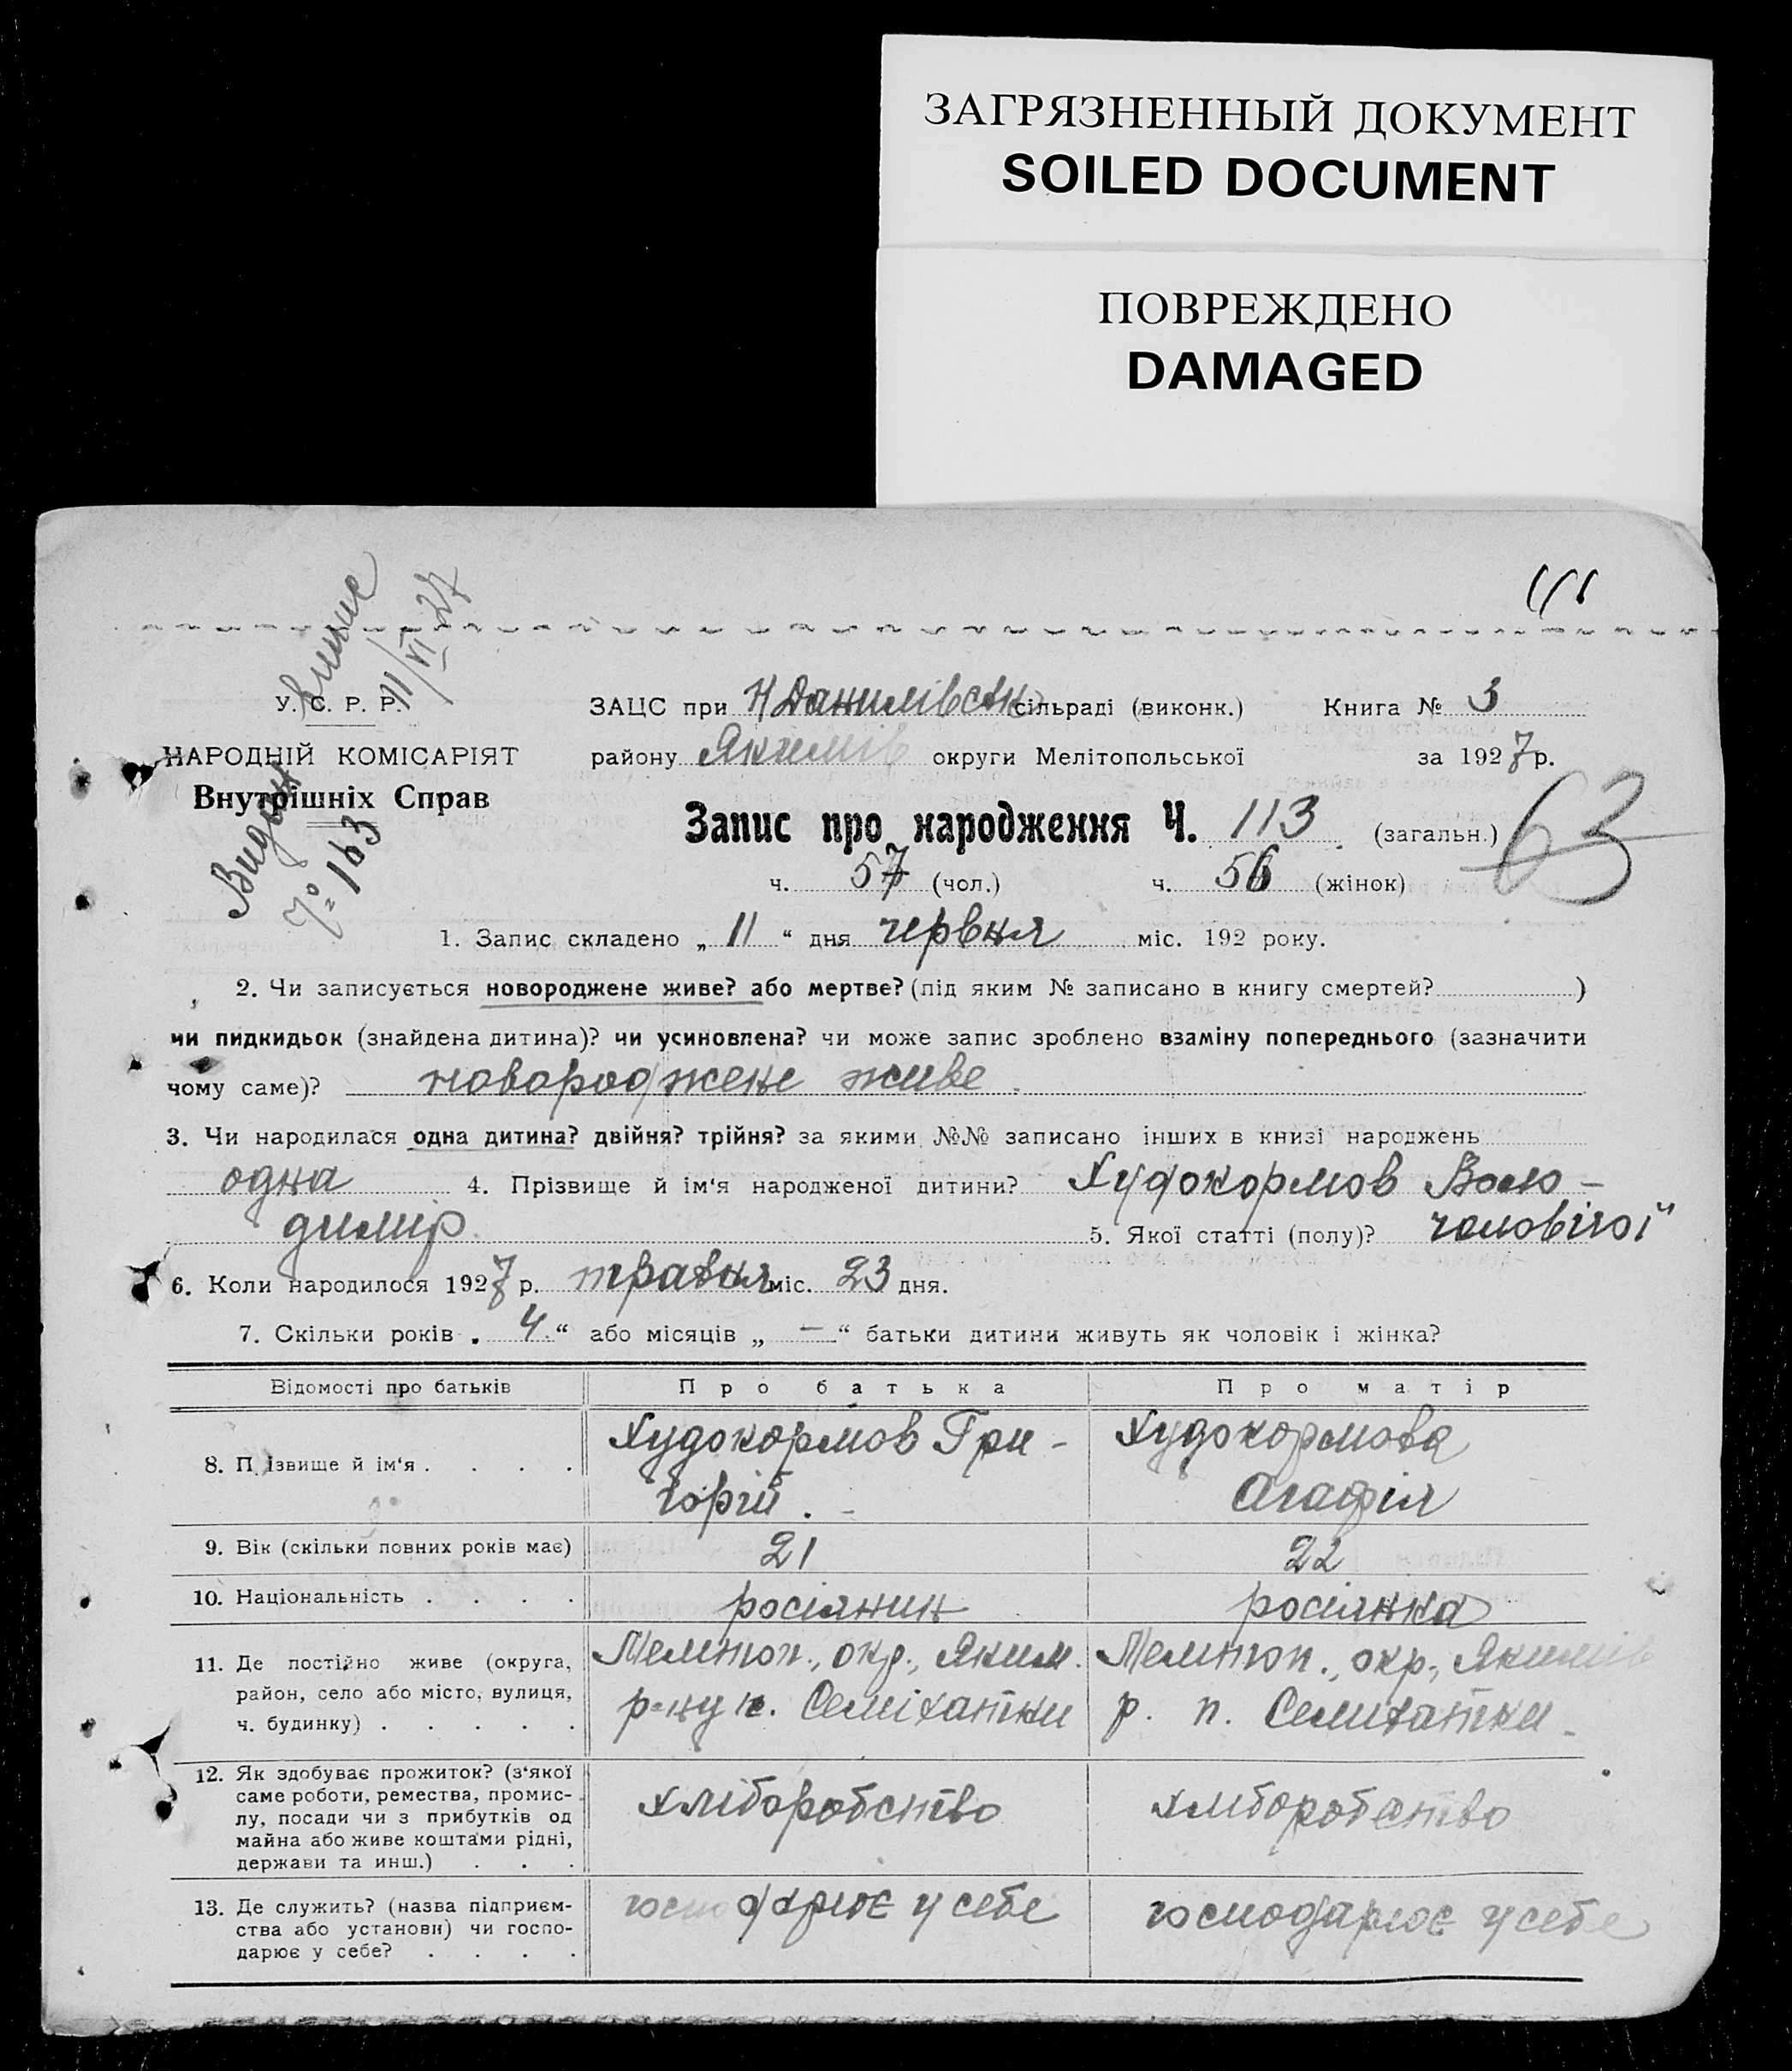 ЗАГРЯЗНЕННЫЙ ДОКУМЕНТ
SOILED DOCUMENT
ПОВРЕЖДЕНО
DAMAGED
11/VI 27
У. С. Р. Р.
НАРОДНІЙ КОМІСАРІЯТ
Внутрішніх Справ
Видан
№ 163
ЗАЦС при Н Данилівськ сільраді (виконк.) Книга № 3
району Якимів округи Мелітопольської за 1927 р.
Запис про народження Ч. 113 (загальн.) 63
ч. 57 (чол.) ч. 56 (жінок)
1. Запис складено „ 11 “ дня червня міс. 192 року.
2. Чи записується новороджене живе? або мертве? (під яким № записано в книгу смертей? )
чи пидкидьок (знайдена дитина)? чи усиновлена? чи може запис зроблено взаміну попереднього (зазначити
чому саме)? новороджене живе.
3. Чи народилася одна дитина? двійня? трійня? за якими №№ записано інших в книзі народжень
одна 4. Прізвище й ім‘я народженої дитини? Худокормов Воло-
димір. 5. Якої статті (полу)? чоловічої
6. Коли народилося 1927 р. травня міс. 23 дня.
7. Скільки років „ 4 “ або місяців „ — “ батьки дитини живуть як чоловік і жінка?
Відомості про батьків Про батька Про матір
8. П ізвище й ім‘я . . . . Худокормов Гри- Худокормова
горій. - Агафія
9. Вік (скільки повних років має) 21 22
10. Національність . . . . росіянин росіянка
11. Де постійно живе (округа, Мелітоп., окр., Яким. Мелітоп., окр., Якимів
район, село або місто, вулиця, р-ну п. Семіхатки р. п. Семихатки -
ч. будинку) . . . . .
12. Як здобуває прожиток? (з‘якої
саме роботи, ремества, промис-
лу, посади чи з прибутків од хліборобство хліборобство
майна або живе коштами рідні,
держави та инш.) . . .
13. Де служить? (назва підприєм- господарює у себе господарює у себе
ства або установи) чи госпо-
дарює у себе? . . . .